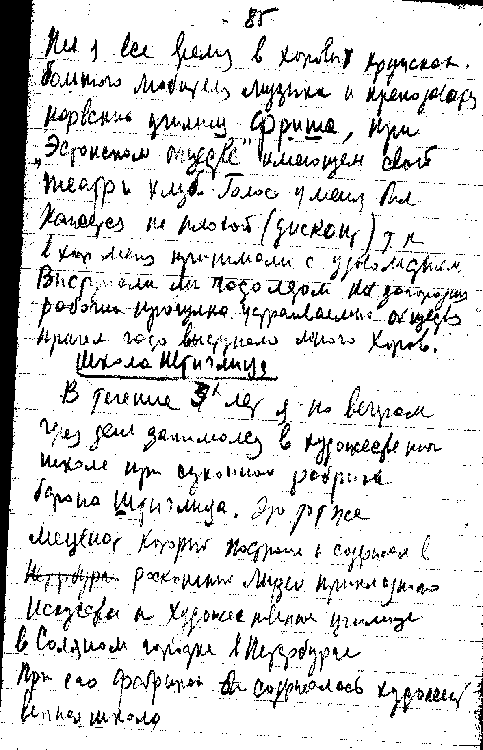 85
Пел я все время в хоровых кружках.
большого любителя музыки и преподавателя
нарвских училищ Фриша, при
„Эстонском обществе" имеющем свой
театр и клуб. Голос у меня был
кажется не плохой (дискант) т к
в хор меня принимали с удовольствием.
Выступали мы под на загородных
рабочих устраиваемых обществ
причем выступало много хоров.
Школа Штиглица
В течение 3х лет я по вечерам
через день занимался в художественной
школе при суконной фабрике
барона Штиглица. Это тот же
меценат который построил и содержал в
Петербурге роскошный музей прикладного
искусства и художественное училище
в Соляном городке в Петербурге
При его фабрике и содержалась художест
венная школа